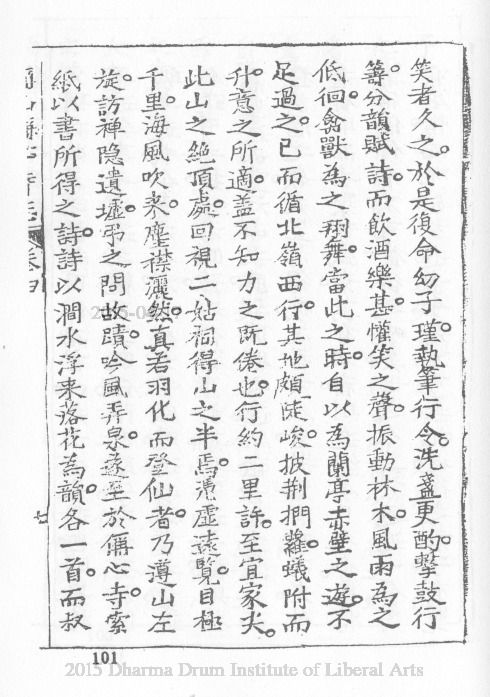 笑者久之。於是復命幼子瑾。執筆行令。洗盞更酌。擊鼓行
籌。分韻賦詩。而飲酒樂甚。懽笑之聲。振動林木。風雨為之
低徊。禽獸為之翔舞。當此之時。自以為蘭亭赤壁之遊。不
足過之。已而循北嶺西行。其地頗陡峻。披荆捫蘿。蟻附而
升。意之所適。蓋不知力之既倦也。行約二里許。至宜家尖。
此山之絕頂處。回視二姑祠得山之半焉。憑虛遠覽。目極
千里。海風吹来。塵襟灑然。真若羽化而登仙者。乃遵山左
旋。訪禅隐遺墟。弔之問故蹟。吟風弄泉。遂至於儞心寺。索
紙以書所得之詩。詩以澗水浮来落花為韻。各一首。而叔
卷四
七
101
2015 Dharma Drum Institute of Liberal Arts